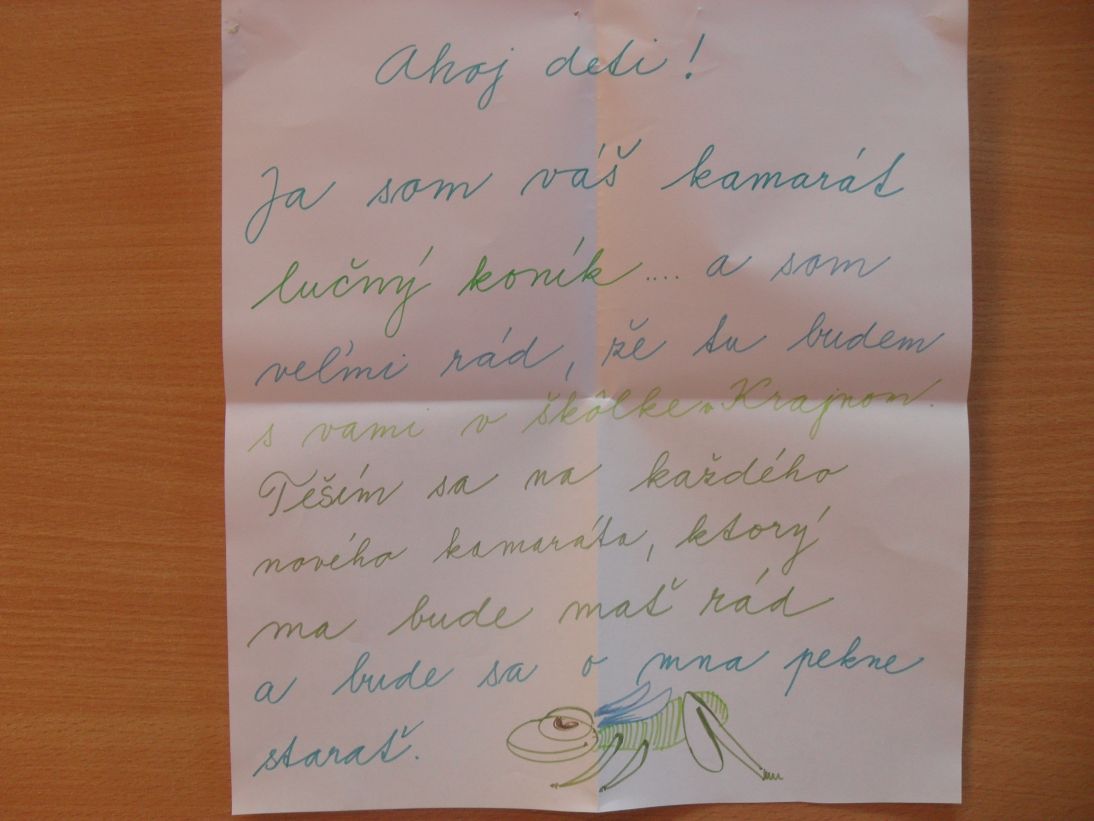 Ahoj deti!
Ja som váš kamarát
lučný koník .... a som
veľmi rád, že tu budem
s vami v škôlke v Krajnom.
Téším sa na každého
nového kamaráta, ktorý
ma bude mať rád
a bude sa o mna pekne
starať.